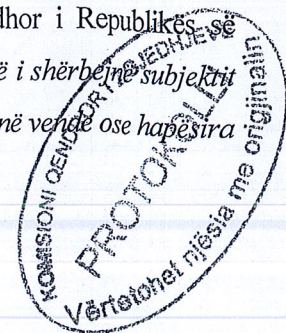 dhor i Republikës së
ë i shërbejnë subjektit
në vende ose hapësira
KOMISIONI QENDROR I ZGJEDHJEVE
PROTOKOLLI
Vërtetohet njësia me origjinalin